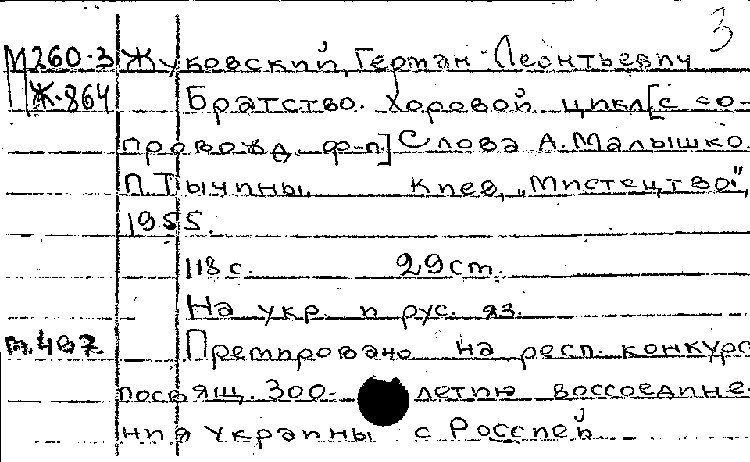 3
М260-3 Жуковский, Герман Леонтьевич
Ж-864 Братство. Хоровой цикл [с со-
провожд. ф-п] Слова А. Малышко.
П. Тычины. Киев, „Мистецтво",
1955.
118 с. 29 см.
На укр. и рус. яз.
т.487 Премировано на респ. конкурс
посвящ. 300-летию воссоедине-
ния Украины с Россией